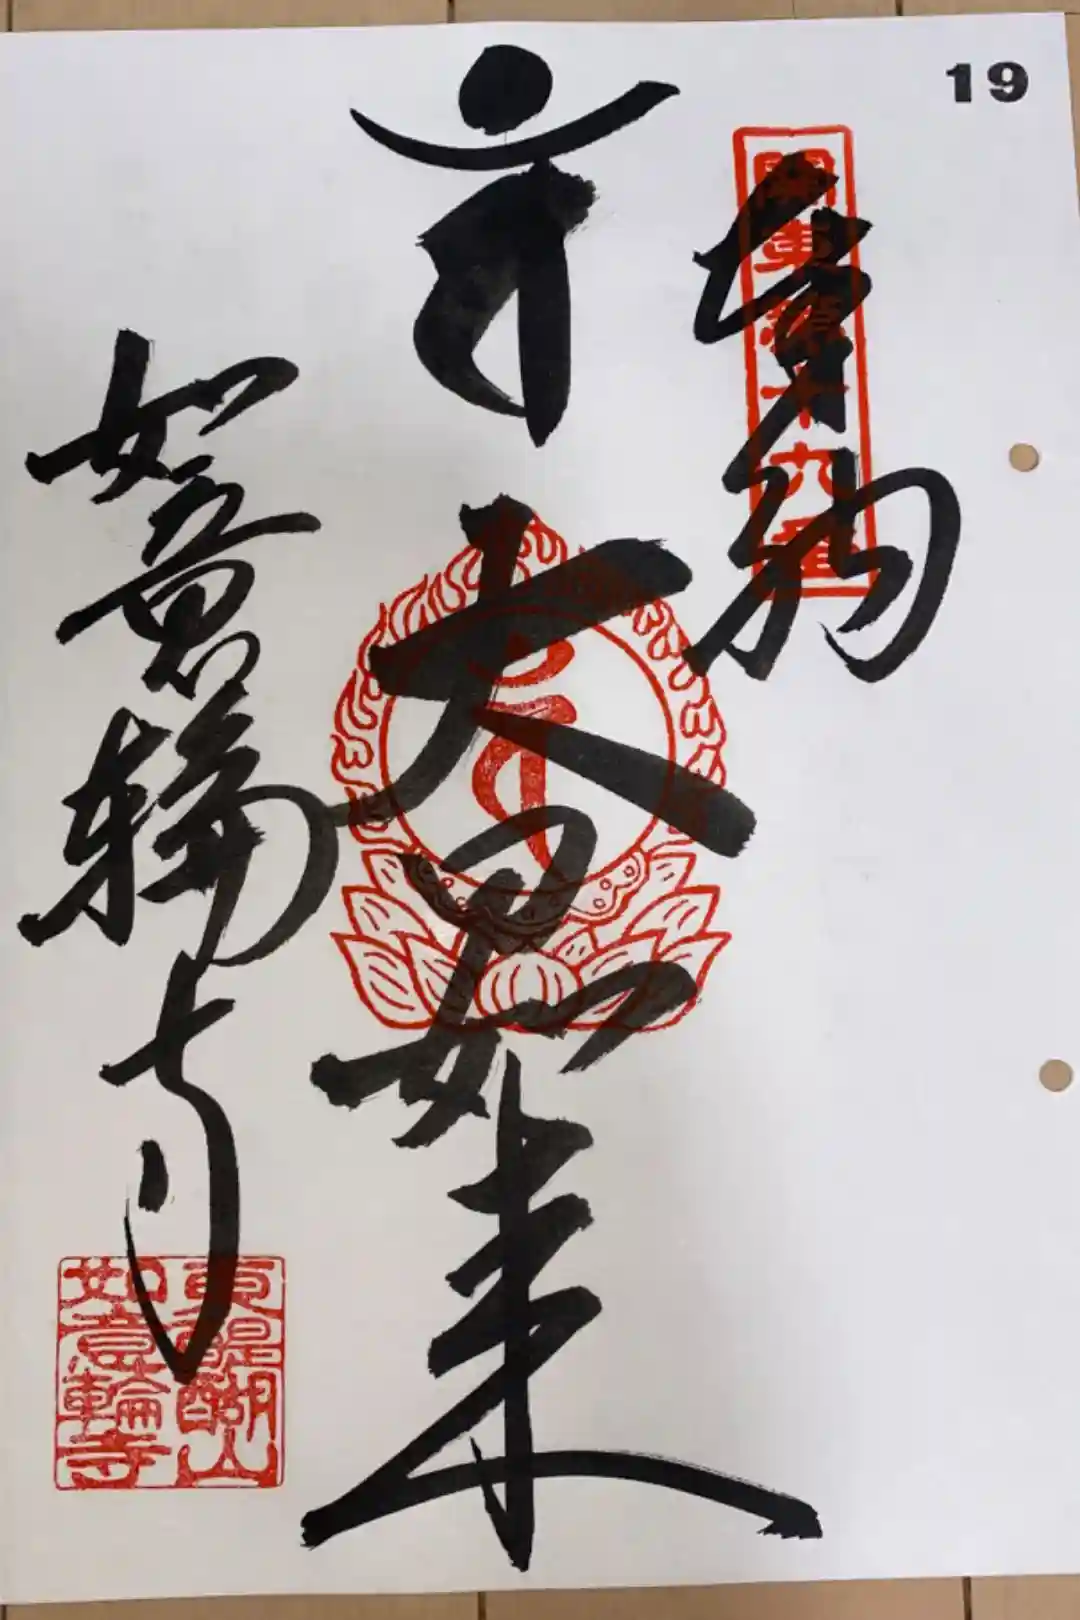 19
奉納
關東第十九番
大日如来
如意輪寺
東醍醐山
如意輪寺